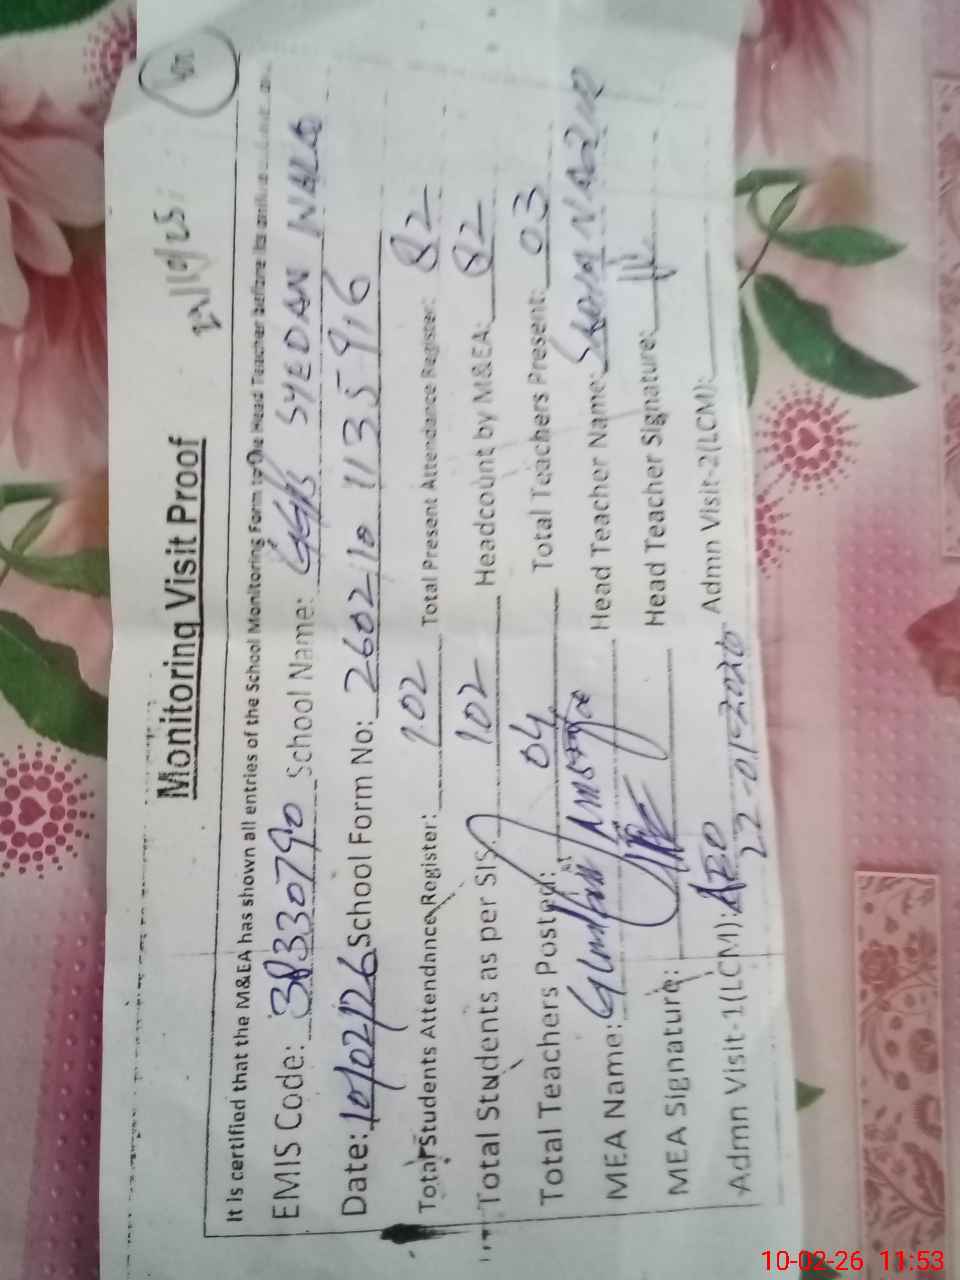 Monitoring Visit Proof
It is certified that the M&EA has shown all entries of the School Monitoring Form to the Head Teacher before its
EMIS Code: 38330790 School Name: GGP/S SYEDAN WALA
Date: 10/02/26 School Form No: 260210 1135916
Total Students Attendance Register: 102 Total Present Attendance Register: 82
Total Students as per SIS: 102 Headcount by M&EA: 82
Total Teachers Posted: 04 Total Teachers Present: 03
MEA Name: Ghulam Head Teacher Name: NAZIR
MEA Signature: Head Teacher Signature:
Admn Visit-1(LCM): AEO 22-01-2026 Admn Visit-2(LCM):
10-02-26 11:53